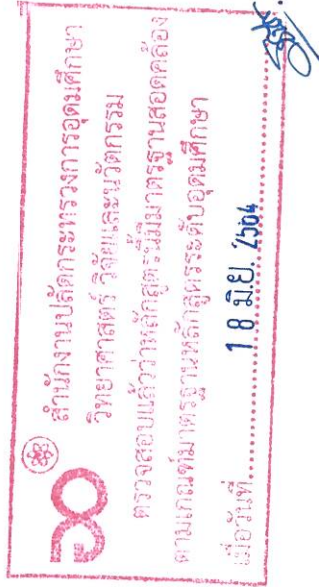 สำนักงานปลัดกระทรวงการอุดมศึกษา
วิทยาศาสตร์ วิจัยและนวัตกรรม
ตรวจสอบแล้วว่าหลักสูตรนี้มีมาตรฐานสอดคล้อง
ตามเกณฑ์มาตรฐานหลักสูตรระดับอุดมศึกษา
เมื่อวันที่ 18 มิ.ย. 2564